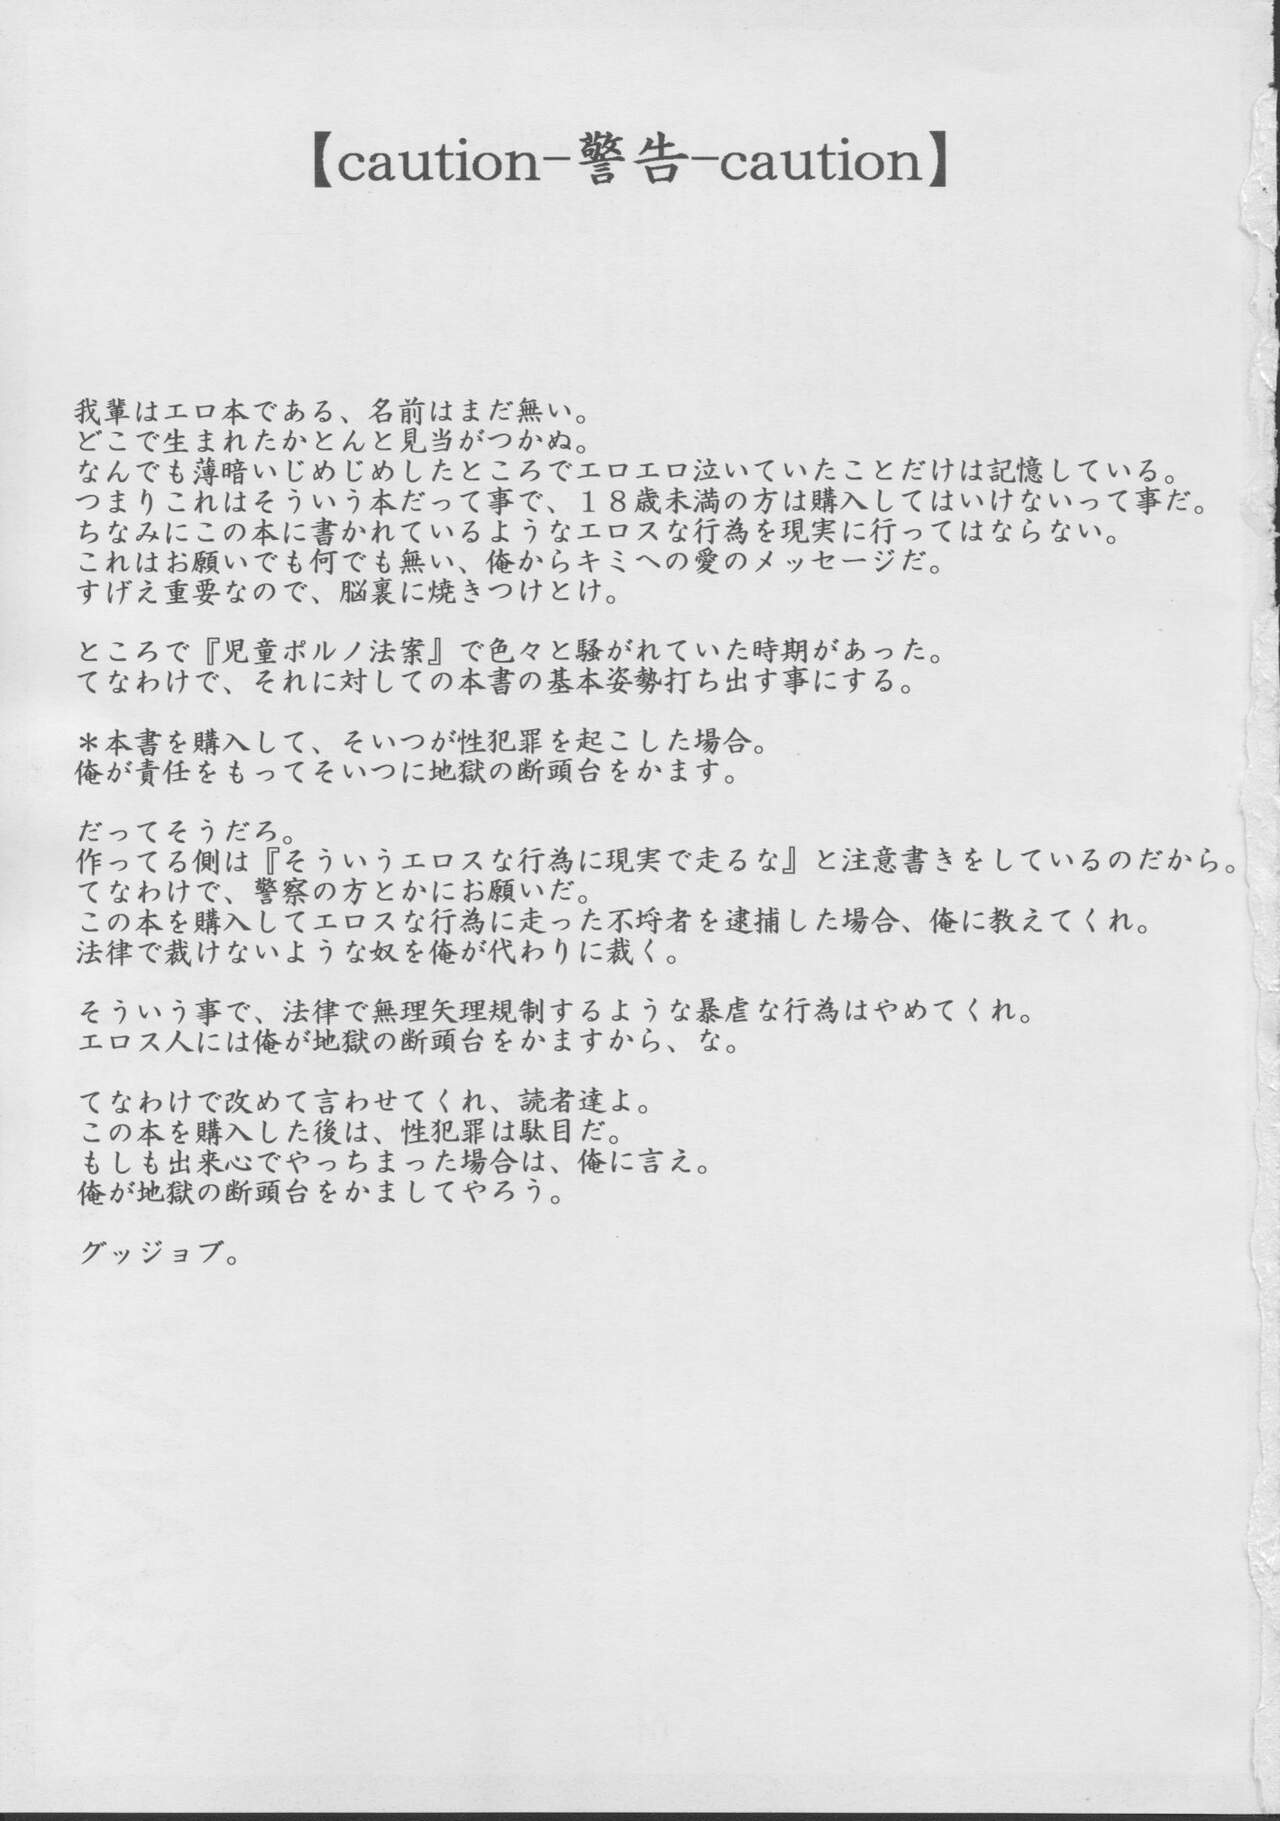 【caution-警告-caution】
我輩はエロ本である、名前はまだ無い。
どこで生まれたかとんと見当がつかぬ。
なんでも薄暗いじめじめしたところでエロエロ泣いていたことだけは記憶している。
つまりこれはそういう本だって事で、１８歳未満の方は購入してはいけないって事だ。
ちなみにこの本に書かれているようなエロスな行為を現実に行ってはならない。
これはお願いでも何でも無い、俺からキミへの愛のメッセージだ。
すげえ重要なので、脳裏に焼きつけとけ。
ところで『児童ポルノ法案』で色々と騒がれていた時期があった。
てなわけで、それに対しての本書の基本姿勢打ち出す事にする。
＊本書を購入して、そいつが性犯罪を起こした場合。
俺が責任をもってそいつに地獄の断頭台をかます。
だってそうだろ。
作ってる側は『そういうエロスな行為に現実で走るな』と注意書きをしているのだから。
てなわけで、警察の方とかにお願いだ。
この本を購入してエロスな行為に走った不埒者を逮捕した場合、俺に教えてくれ。
法律で裁けないような奴を俺が代わりに裁く。
そういう事で、法律で無理矢理規制するような暴虐な行為はやめてくれ。
エロス人には俺が地獄の断頭台をかますから、な。
てなわけで改めて言わせてくれ、読者達よ。
この本を購入した後は、性犯罪は駄目だ。
もしも出来心でやっちまった場合は、俺に言え。
俺が地獄の断頭台をかましてやろう。
グッジョブ。